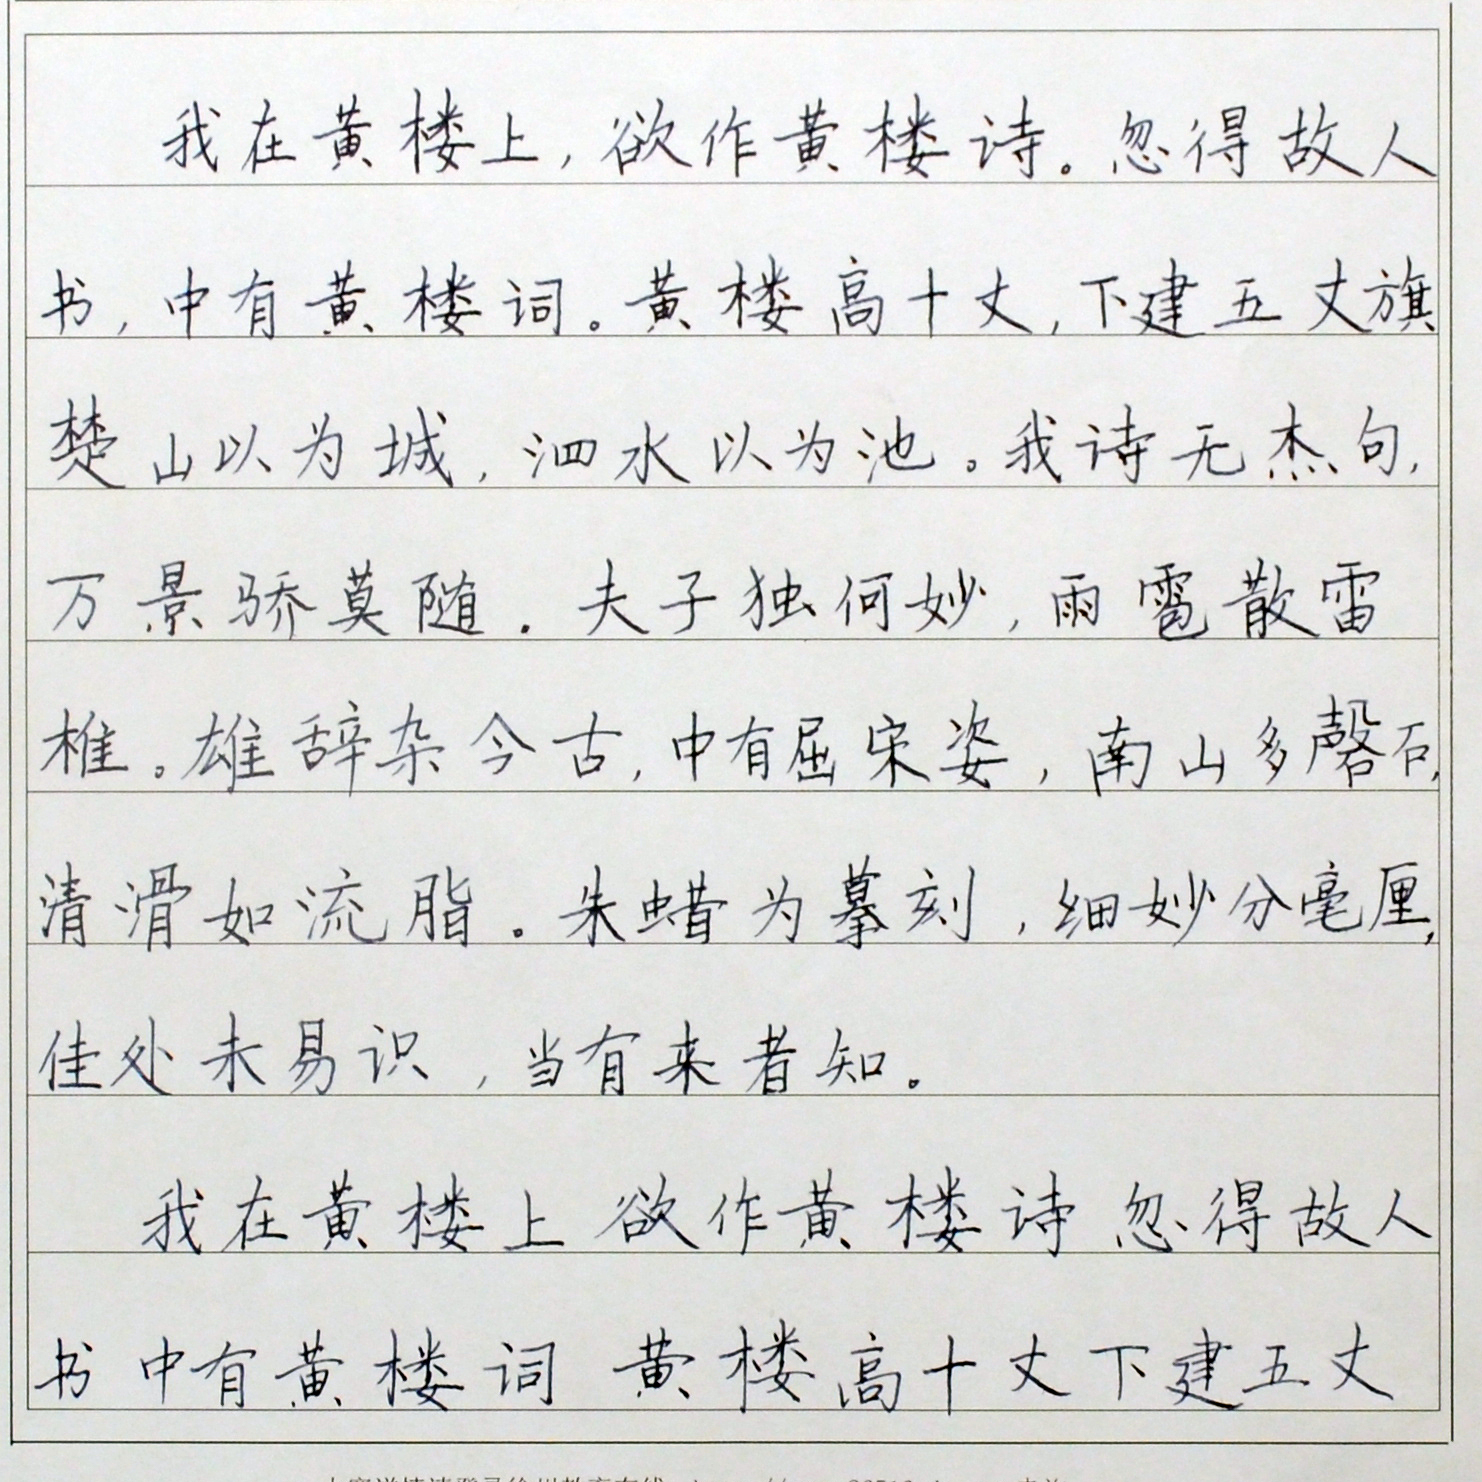 我在黄楼上，欲作黄楼诗。忽得故人
书，中有黄楼词。黄楼高十丈，下建五丈旗
楚山以为城，泗水以为池。我诗无杰句，
万景骄莫随。夫子独何妙，雨雹散雷
椎。雄辞杂今古，中有屈宋姿，南山多磬石，
清滑如流脂。朱蜡为摹刻，细妙分毫厘，
佳处未易识，当有来者知。
我在黄楼上 欲作黄楼诗 忽得故人
书 中有黄楼词 黄楼高十丈下建五丈